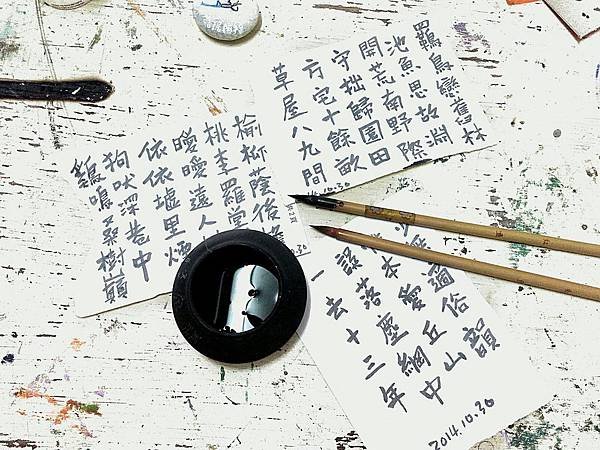 少無適俗韻
性本愛丘山
誤落塵網中
一去十三年
2014.10.30
羈鳥戀舊林
池魚思故淵
開荒南野際
守拙歸園田
方宅十餘畝
草屋八九間
10.30
榆柳蔭後
桃李羅堂
曖曖遠人
依依墟里煙
狗吠深巷中
鷄鳴桑樹巔